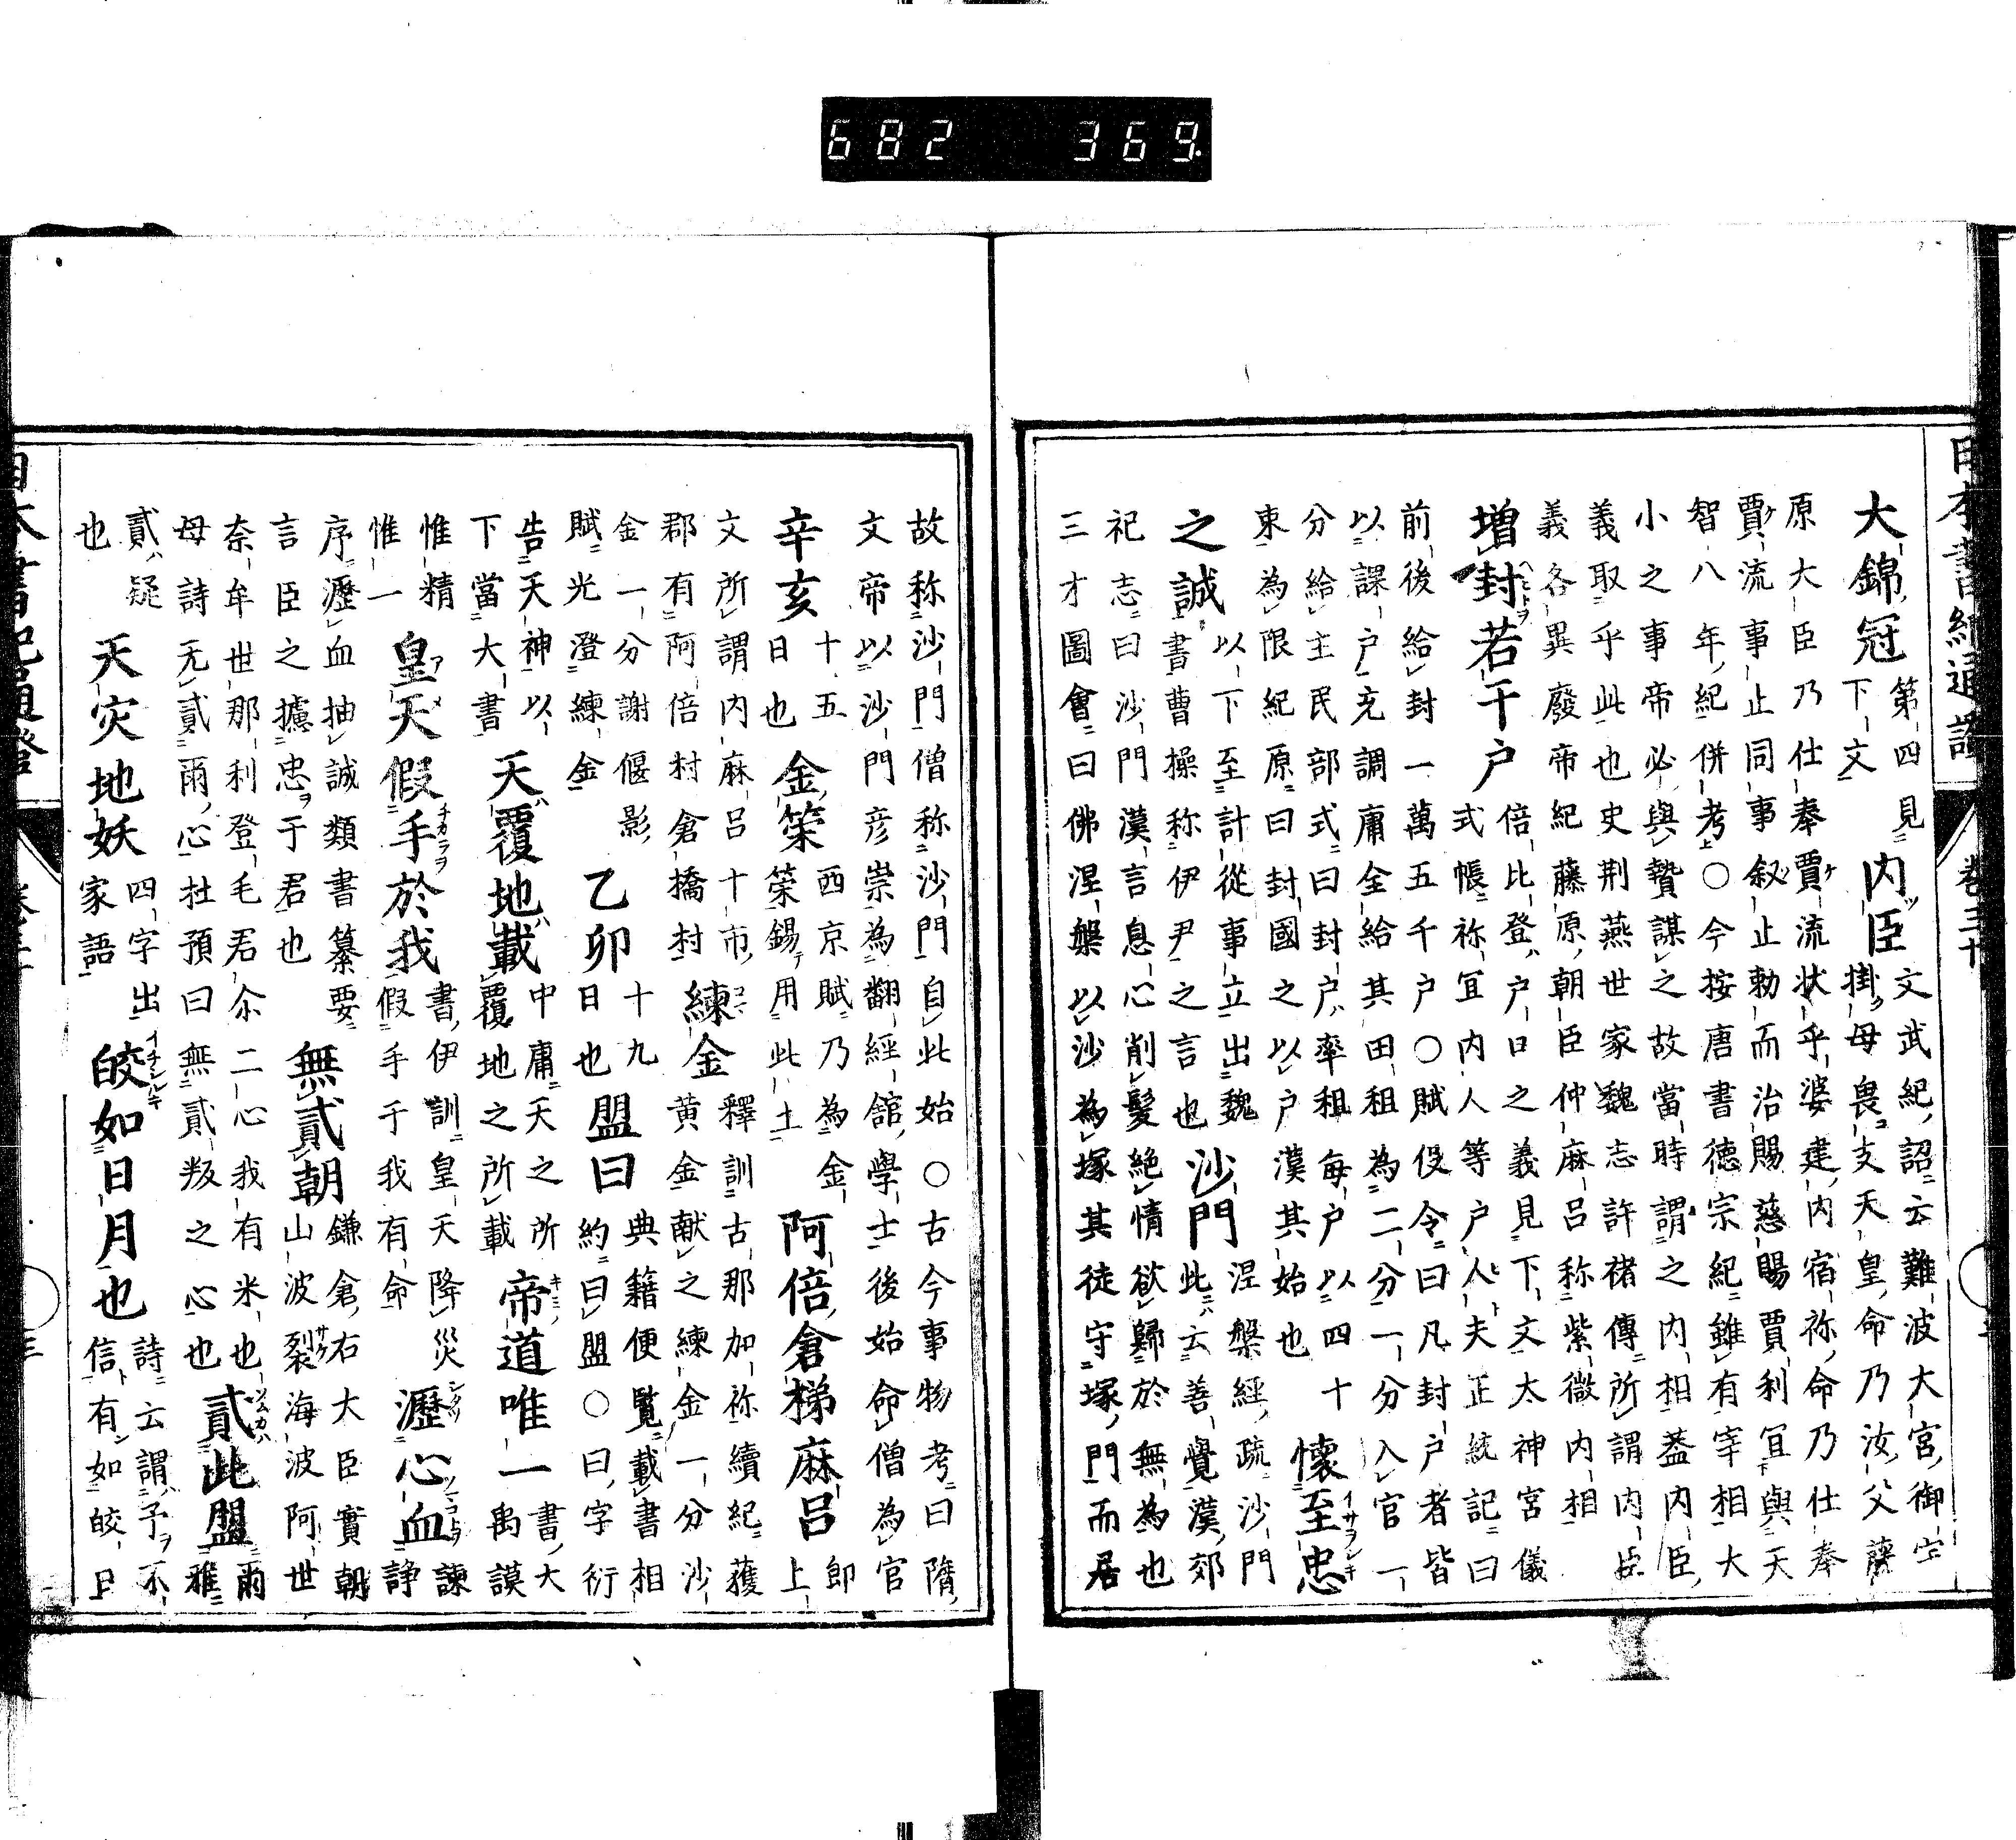 682 369.
日本書紀通證 卷三十
大錦冠 第四見下文 内臣 文武紀詔云難波大宮御宇掛母畏支天皇命乃汝父藤
原大臣乃仕奉賈流状乎婆建内宿祢命乃仕奉
賈流事止同事叙止勅而治賜慈賜賈利冝與天
智八年紀併考○今按唐書德宗紀雖有宰相大
小之事帝必與贄謀之故當時謂之内相葢内臣
義取乎此也史荆燕世家魏志許褚傳所謂内臣
義各異廢帝紀藤原朝臣仲麻呂称紫微内相
増封若干戸 倍比登戸口之義見下文太神宮儀式帳祢冝内人等戸人夫正統記曰
前後給封一萬五千戸○賦役令曰凡封戸者皆
以課戸充調庸全給其田租為二分一分入官一
分給主民部式曰封戸率租毎戸以四十
束為限紀原曰封國之以戸漢其始也 懷至忠
之誠 以下至計從事立出魏書曹操称伊尹之言也 沙門 涅槃經疏沙門此云善覺漢郊
祀志曰沙門漢言息心削髮絶情欲歸於無為也
三才圖會曰佛涅槃以沙為塚其徒守塚門而居
故称沙門僧称沙門自此始○古今事物考曰隋
文帝以沙門彦崇為翻經舘學士後始命僧為官
辛亥 十五日也 金策 西京賦乃為金策錫用此土 阿倍倉梯麻呂 即上
文所謂内麻呂十市郡有阿倍村倉橋村 練金 釋訓古那加祢續紀獲黄金獻之練金一分沙
金一分謝偃影賦光澄練金 乙卯 十九日也 盟曰 典籍便覽載書相約曰盟○曰字衍
告天神以下當大書 天覆地載 中庸天之所覆地之所載 帝道唯一 書大禹謨
惟精惟一 皇天假手於我 書伊訓皇天降災假手于我有命 瀝心血 諫諍
序瀝血抽誠類書纂要 無貳朝 鎌倉右大臣實朝
言臣之攄忠于君也 山波裂海波阿世
奈牟世那利登毛君尒二心我有米也 貳此盟 雨雅
母詩无貳爾心杜預曰無貳叛之心也
貳疑也 天灾地妖 四字出家語 皎如日月也 詩云謂予不信有如皎日
日本書紀通證